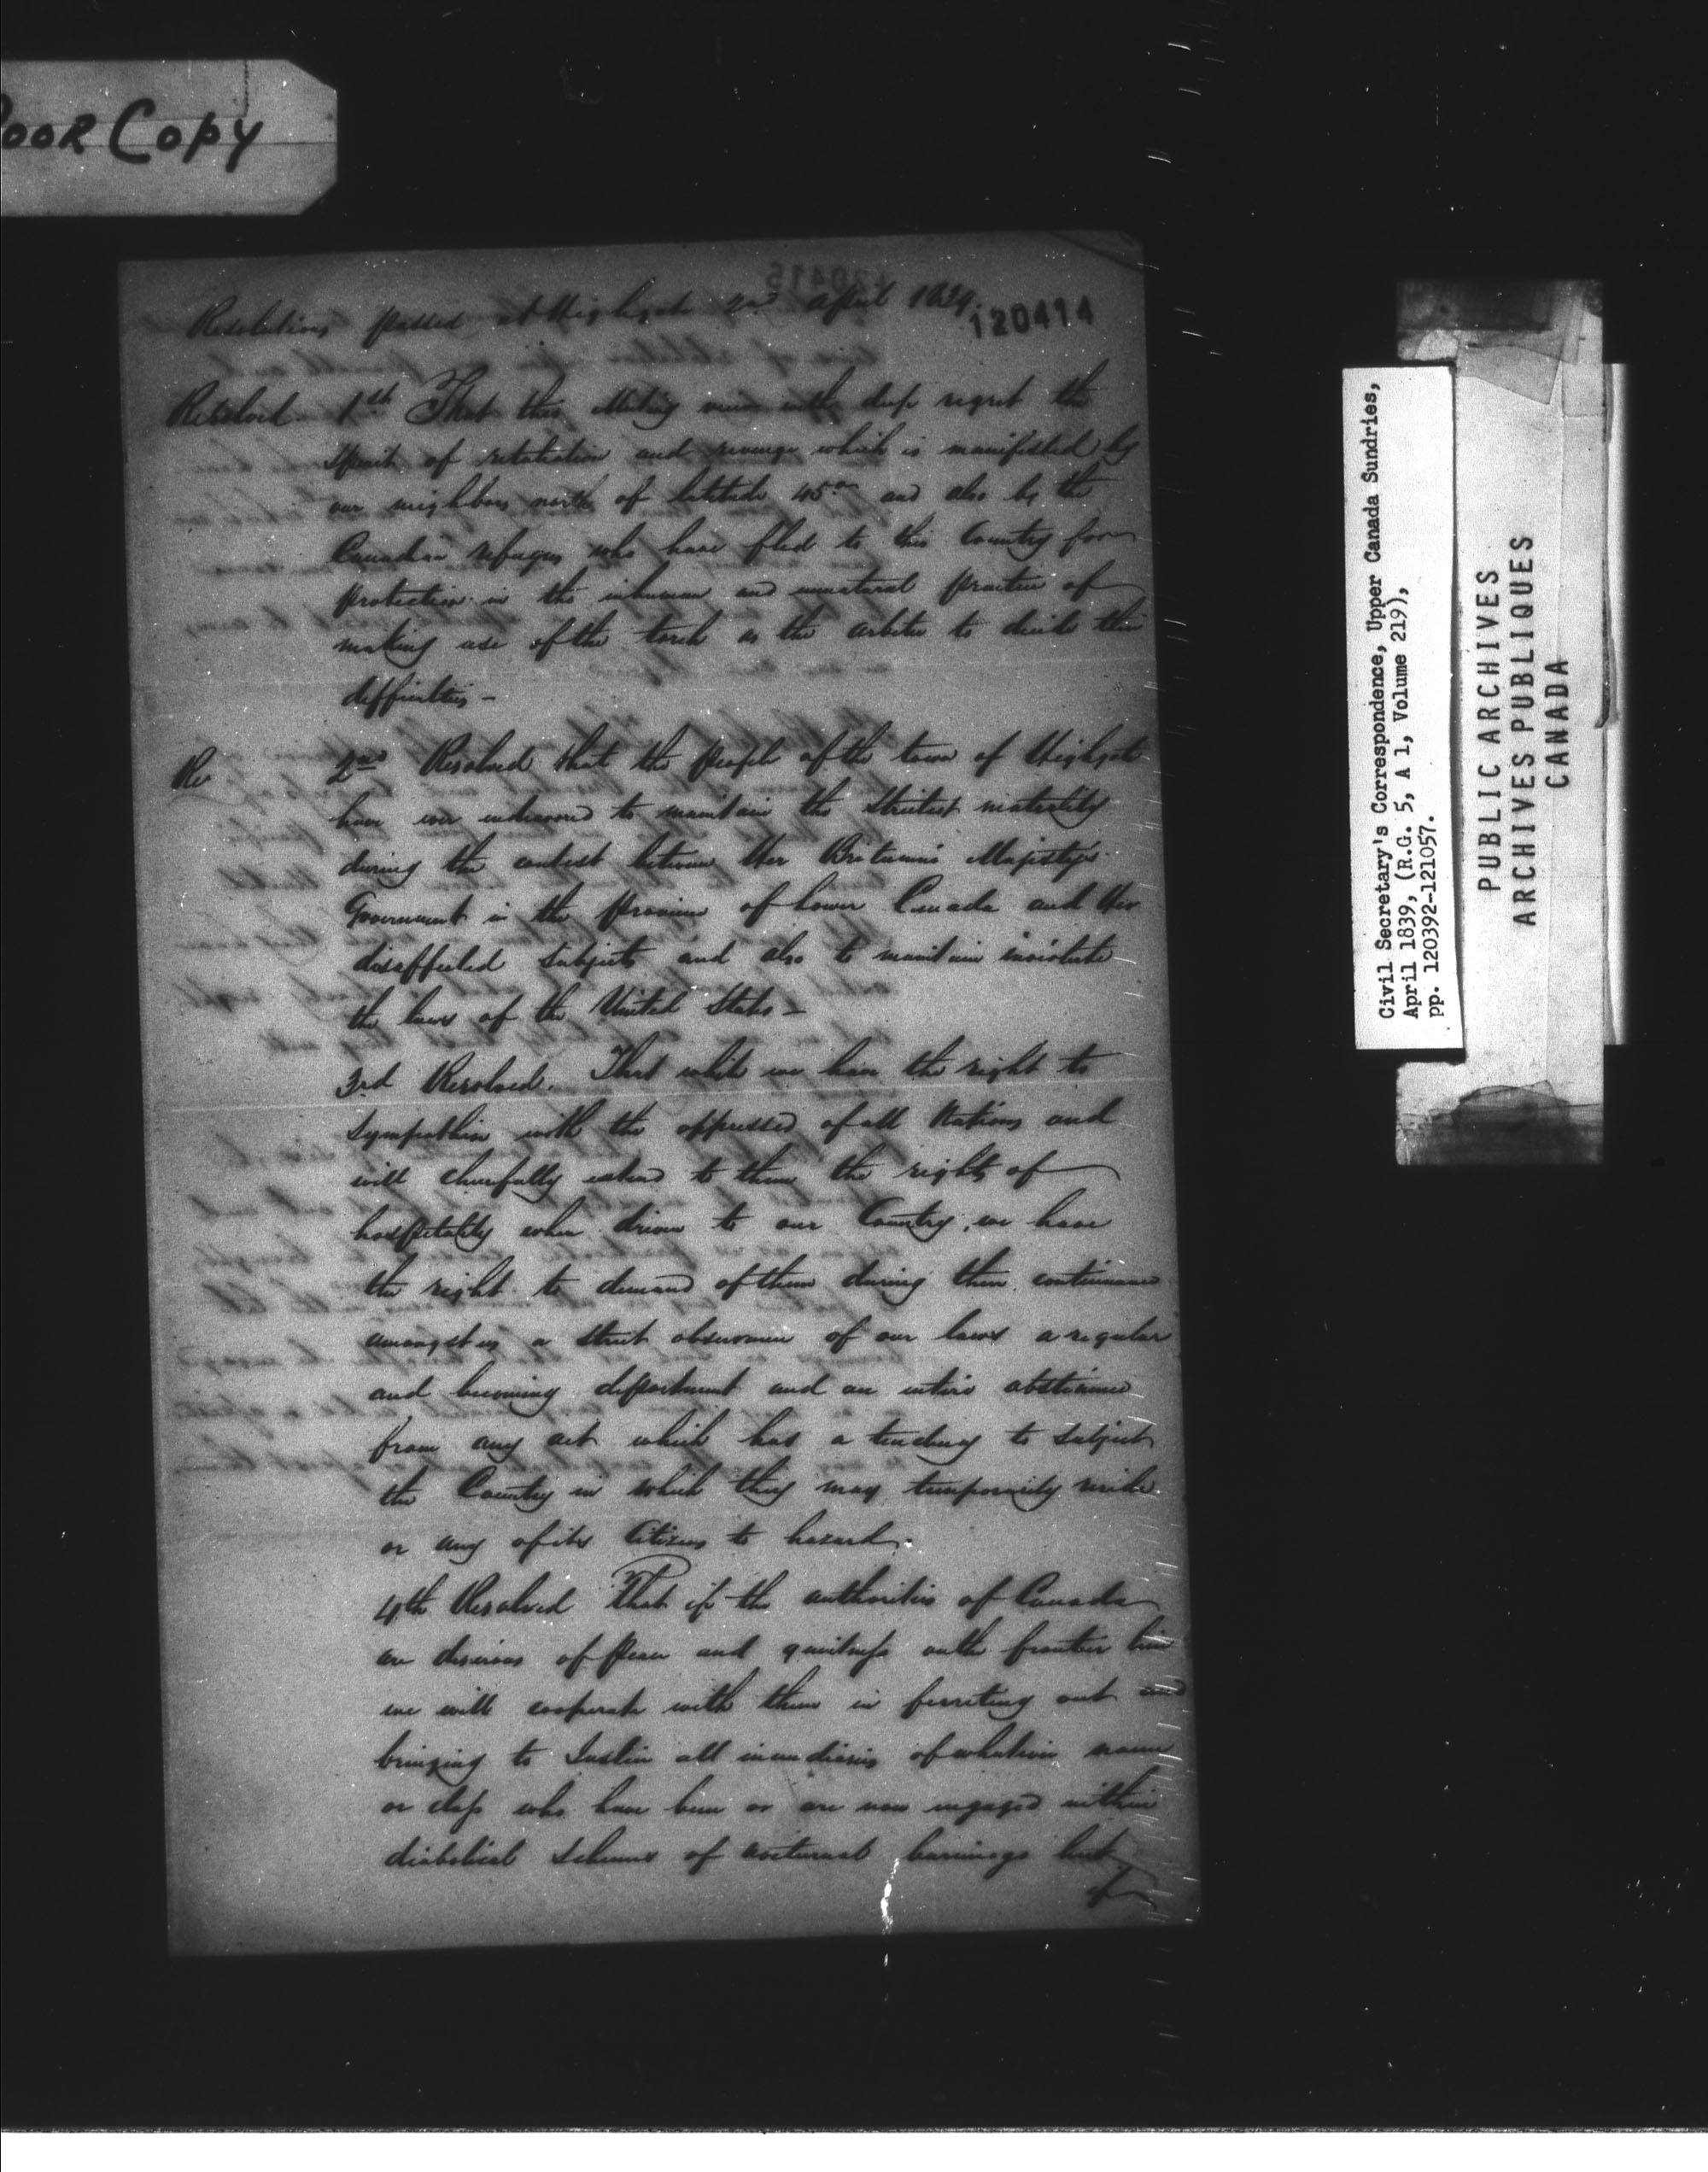 Poor Copy
120415
Resolutions passed at Highgate 2nd April 1839.
120414
Resolved 1st That this Meeting view with deep regret the
spirit of retaliation and revenge which is manifested by
our neighbors north of latitude 45° and also by the
Canadian refugees who have fled to this Country for
protection in the inhuman and unnatural practice of
making use of the torch as the arbiter to decide their
difficulties -
Re 2nd Resolved that the people of the town of Highgate
have ever endeavored to maintain the strictest neutrality
during the contest between Her Britannic Majesty's
Government in the province of Lower Canada and Her
disaffected subjects and also to maintain inviolate
the laws of the United States -
3rd Resolved. That while we have the right to
sympathise with the oppressed of all Nations and
will cheerfully extend to them the rights of
hospitality when driven to our Country, we have
the right to demand of them during their continuance
amongst us a strict observance of our laws a regular
and becoming deportment and an entire abstinence
from any act which has a tendency to subject
the Country in which they may temporarily reside
or any of its Citizens to hazard.
4th Resolved That if the authorities of Canada
are desirous of peace and quietness on the frontier line
we will cooperate with them in ferreting out and
bringing to Justice all incendiaries of whatever name
or class who have been or are now engaged in their
diabolical schemes of nocturnal burnings but
if
Civil Secretary's Correspondence, Upper Canada Sundries,
April 1839, (R.G. 5, A 1, Volume 219),
pp. 120392-121057.
PUBLIC ARCHIVES
ARCHIVES PUBLIQUES
CANADA